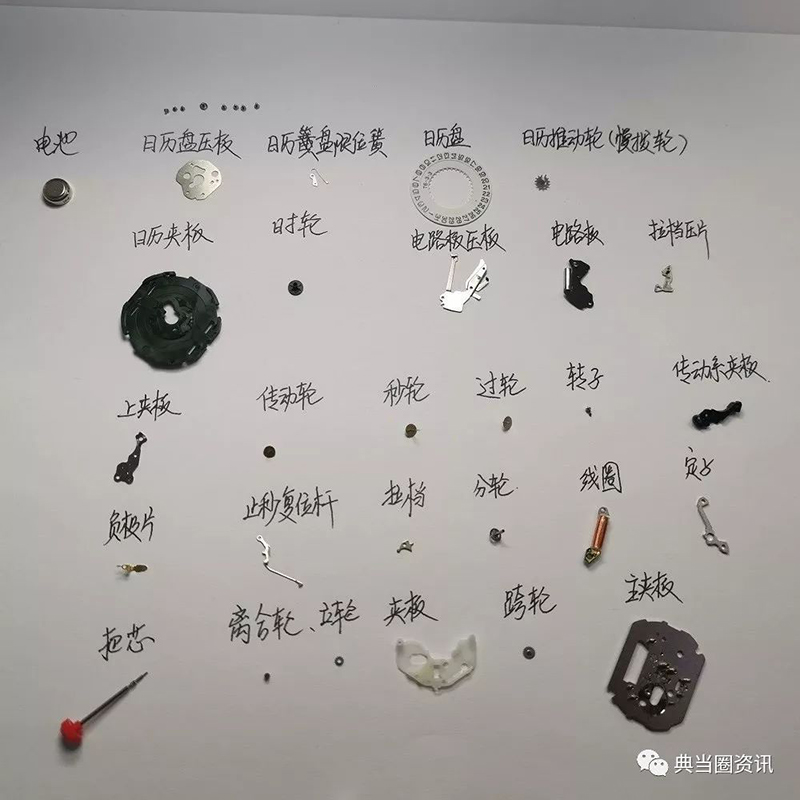 电池 日历盘压板 日历簧盘限位簧 日历盘 日历推动轮(慢拨轮)
日历夹板 时轮 电路板压板 电路板 拉档压片
上夹板 传动轮 秒轮 过轮 转子 传动系夹板
负极片 止秒复位杆 拉档 分轮 线圈 定子
把芯 离合轮、立轮 夹板 跨轮 主夹板
典当圈资讯